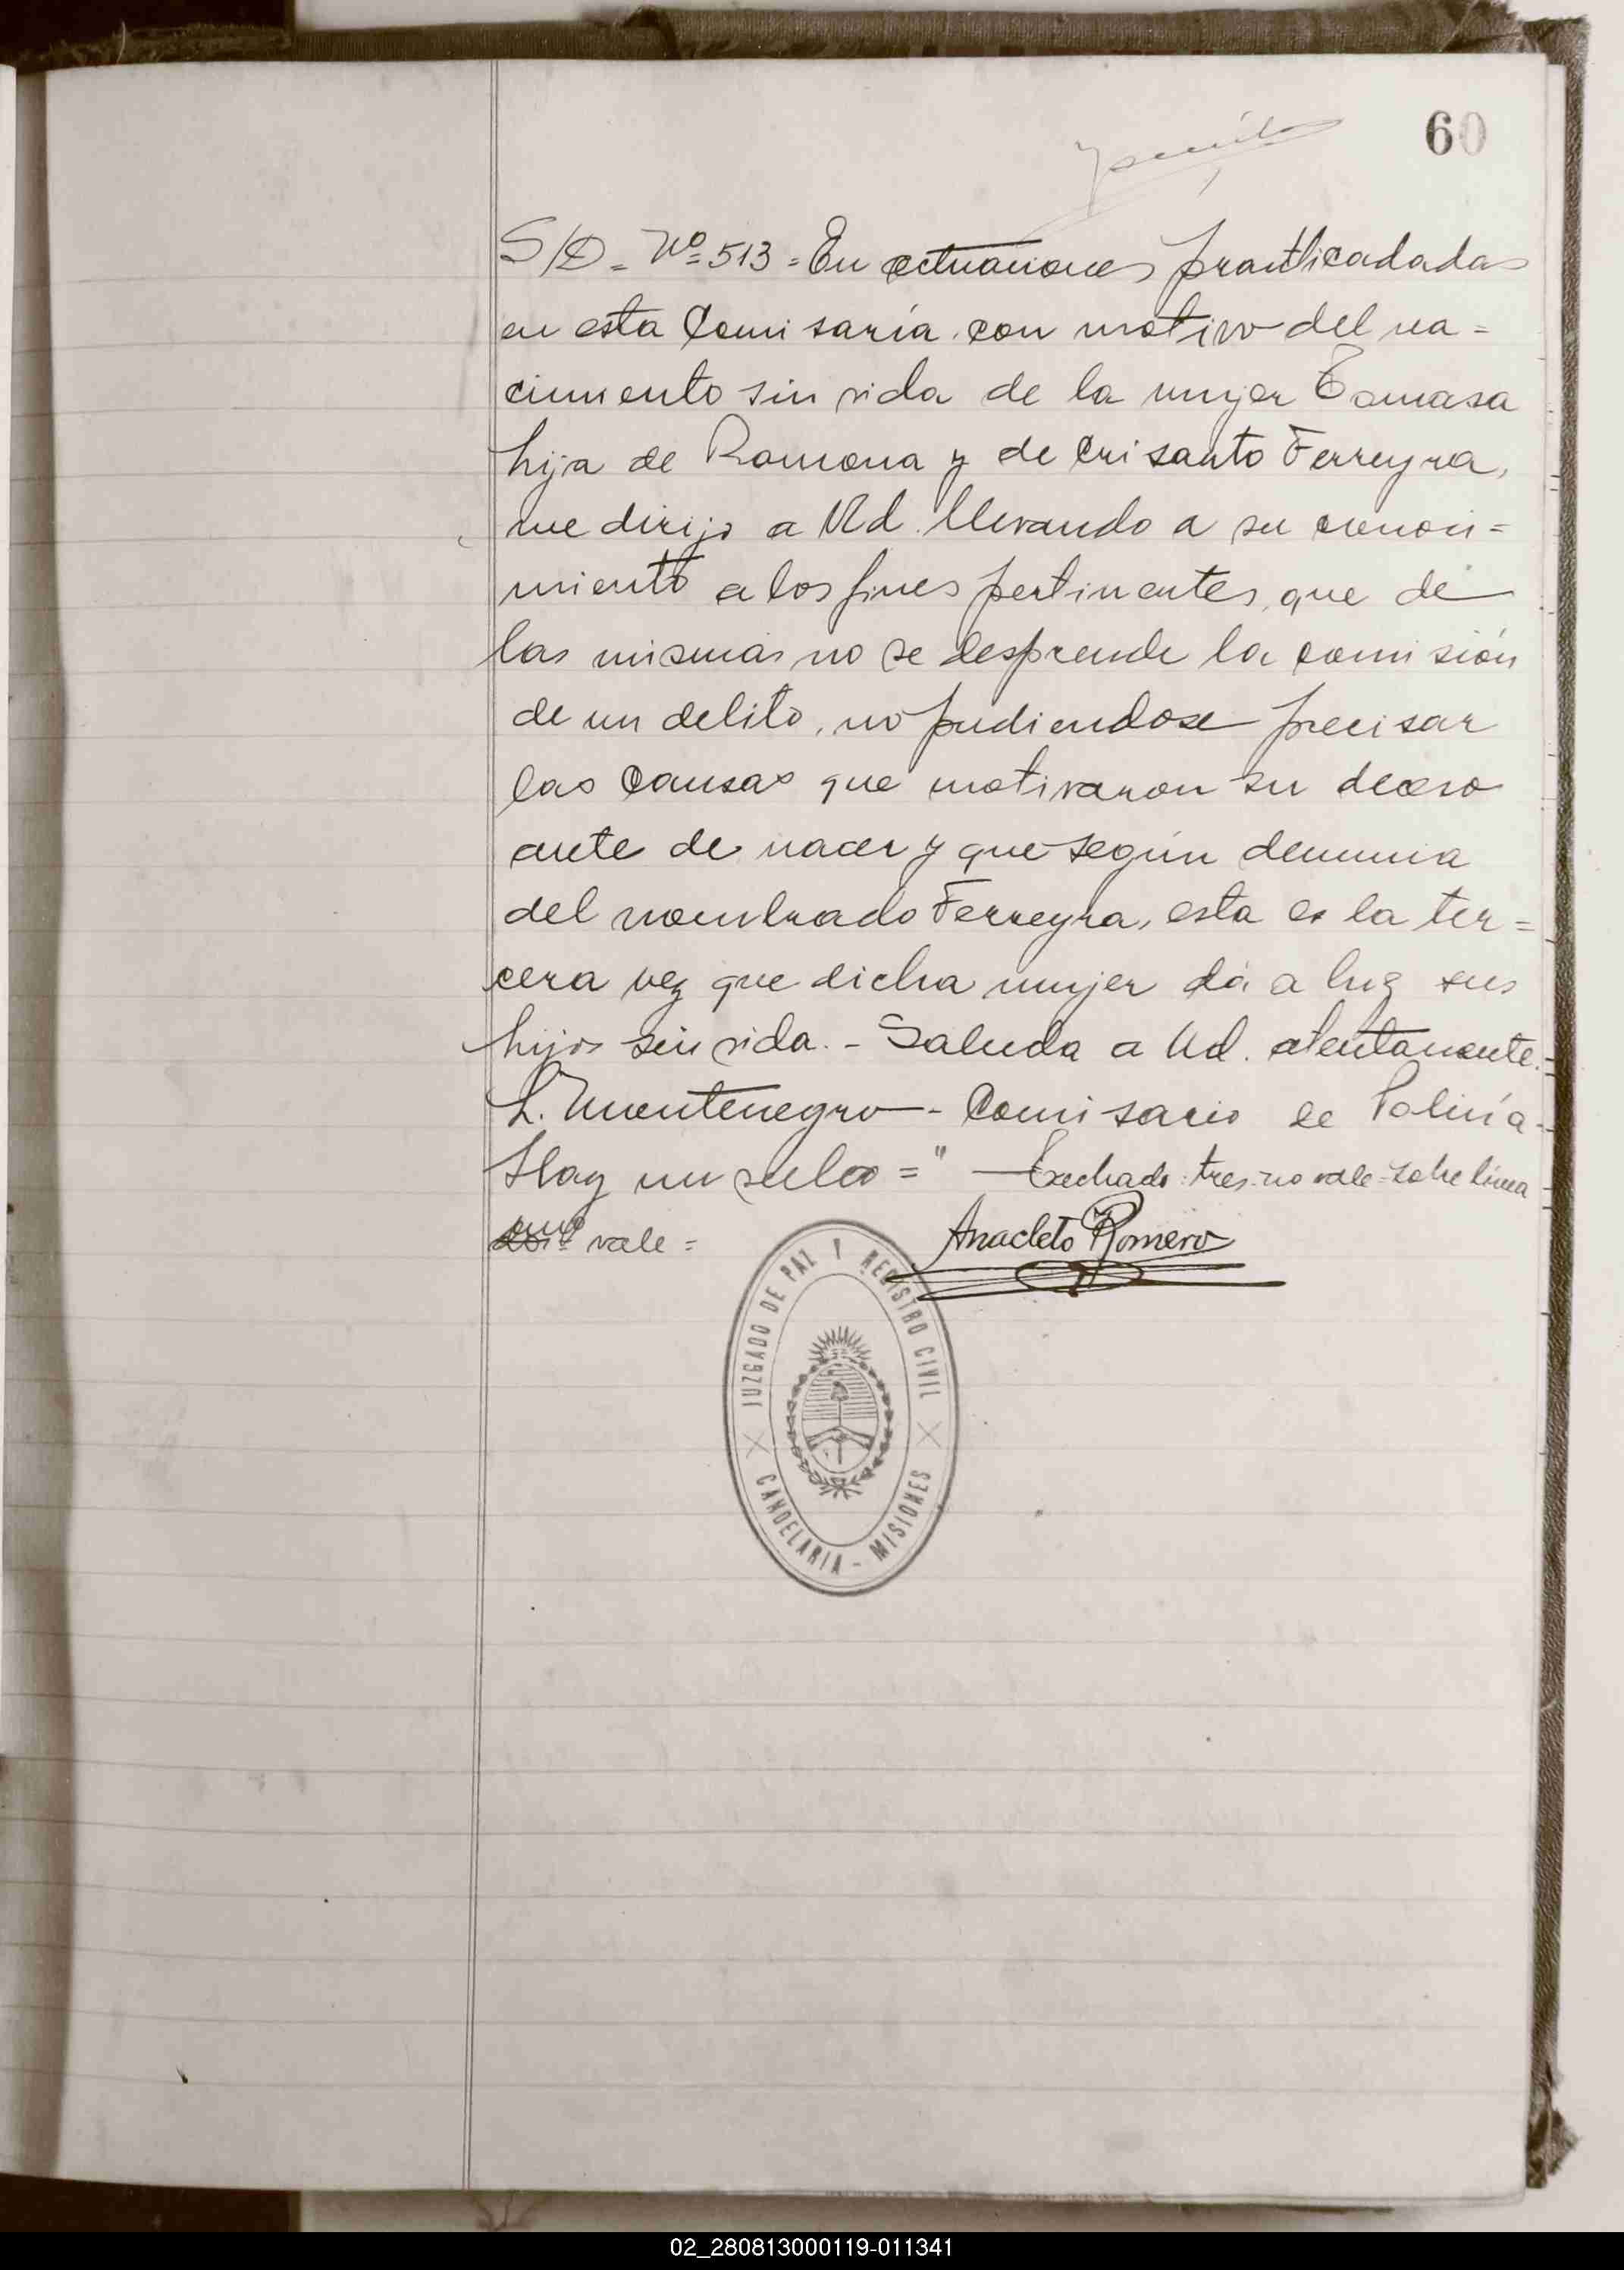 60
S/D = Nº 513 = En actuaciones practicadadas
en esta Comisaría con motivo del na=
cimiento sin vida de la mujer Tomasa
hija de Ramona y de Crisanto Ferreyra,
me dirijo a Ud. llevando a su conoci=
miento a los fines pertinentes, que de
las mismas no se desprende la comisión
de un delito, no pudiendose precisar
las causas que motivaron su deceso
ante de nacer y que según denuncia
del nombrado Ferreyra, esta es la ter=
cera vez que dicha mujer dá a luz sus
hijos sin vida. - Saluda a Ud. atentamente.
L. Montenegro - Comisario de Policía -
Hay un sello = " Techado: tres: no vale = sobre línea
vale =
Anacleto Romero
JUZGADO DE PAZ Y REGISTRO CIVIL
CANDELARIA - MISIONES
02_280813000119-011341